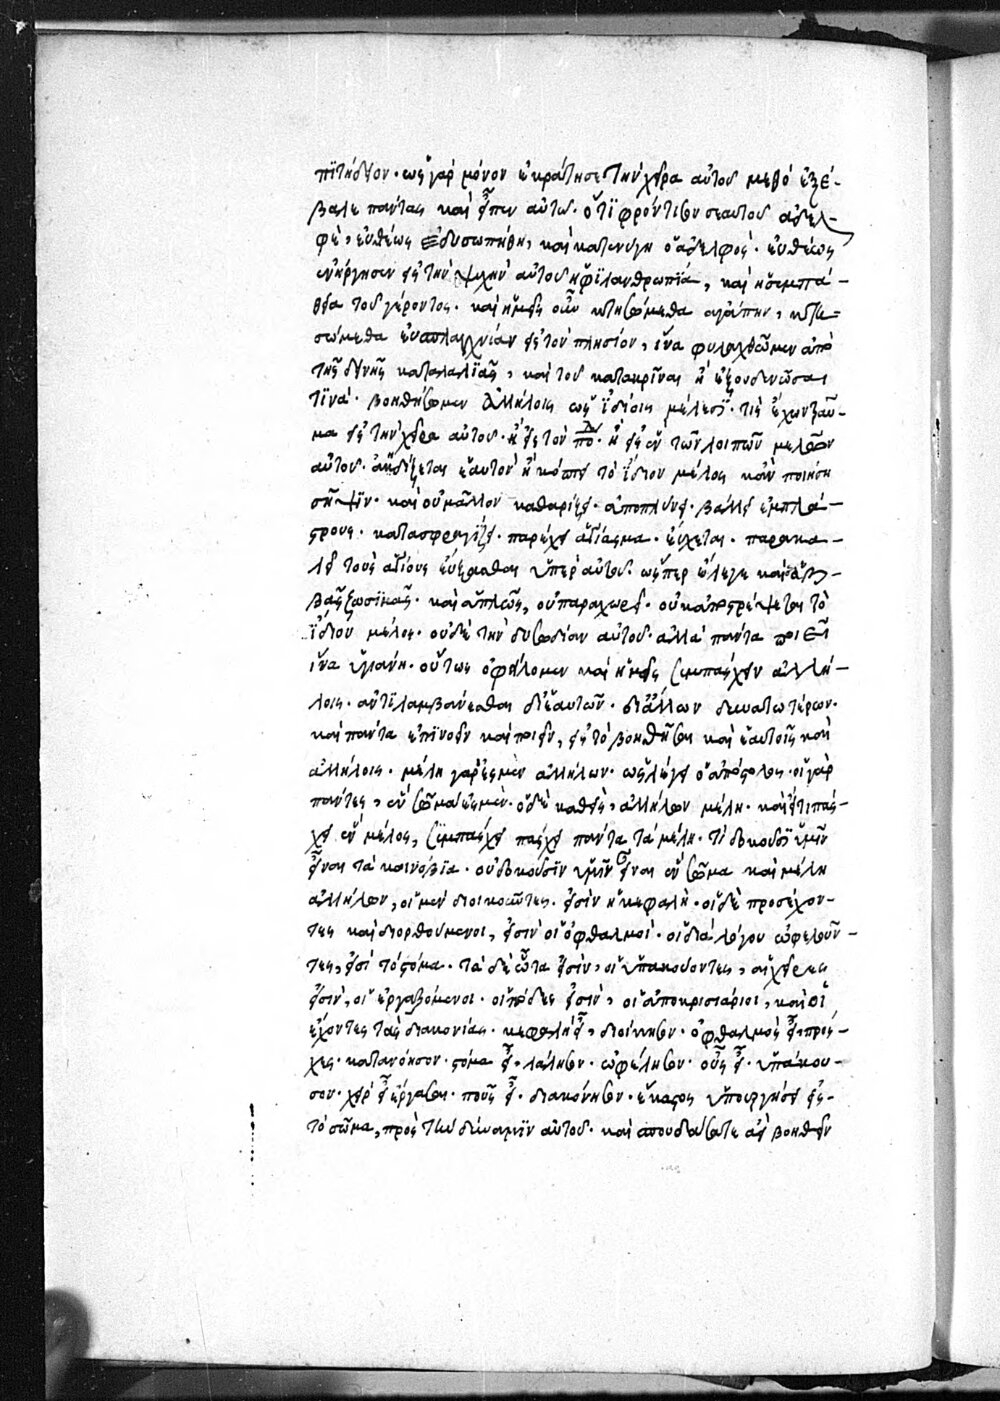 πϊτήδϊον· ὡς γὰρ μόνον ἐκράτησε τὴν χεῖρα αὐτοῦ μεθ' ὃ ἐξέ-
βαλε πάντας καὶ εἶπεν αὐτῶ· ὅτϊ φρόντισον σεαυτοῦ ἀδελ-
φὲ, εὐθέως ἐδυσωπήθη, καὶ κατενύγη ὁ ἀδελφός· εὐθέως
ἐνήργησεν εἰς τὴν ψυχὴν αὐτοῦ ἡ φϊλανθρωπΐα, καὶ ἡ συμπά-
θεια τοῦ γέροντος· καὶ ἡμεῖς οὖν κτησώμεθα ἀγάπην, κτη-
σώμεθα εὐσπλαγχνίαν εἰς τὸν πλησίον, ἵνα φυλαχθῶμεν ἀπὸ
τῆς δεινῆς καταλαλϊᾶς, καὶ τοῦ κατακρῖναι ἢ ἐξουδενῶσαι
τϊνά· βοηθήσωμεν ἀλλήλοις ὡς ϊδίοις μέλεσϊ· τίς ἔχων τραῦ-
μα εἰς τὴν χεῖρα αὐτοῦ· ἢ εἰς τὸν πόδ· ἢ εἰς ἓν τῶν λοιπῶν μελῶν
αὐτοῦ· ἀηδίζεται ἑαυτὸν ἢ κόπτει τὸ ἴδιον μέλος κἂν ποιήση
σῆψϊν· καὶ οὐ μᾶλλον καθαρίζει· ἀποπλύνει· βάλλει ἐμπλά-
στρους· κατασφραγίζει· παρέχει ἁγίασμα· εὔχεται· παρακα-
λεῖ τοὺς ἁγίους εὔξασθαι ὑπὲρ αὐτοῦ· ὥσπερ ἔλεγε καὶ ὁ ἀβ-
βᾶς ζωσϊμᾶς· καὶ ἁπλῶς, οὐ παραχωρεῖ· οὐκ ἀποστρέψεται τὸ
ϊδιον μέλος· οὐδὲ τὴν δυσωδίαν αὐτοῦ· ἀλλὰ πάντα ποιεῖ
ἵνα ὑγιάνη· οὕτως ὀφείλομεν καὶ ἡμεῖς συμπάσχειν ἀλλή-
λοις· ἀντϊλαμβάνεσθαι δι' ἑαυτῶν· δι' ἄλλων δυνατωτέρων·
καὶ πάντα ἐπϊνοεῖν καὶ ποιεῖν, εἰς τὸ βοηθῆσαι καὶ ἑαυτοῖς καὶ
ἀλλήλοις· μέλη γάρ ἐσμεν ἀλλήλων· ὡς λέγει ὁ ἀπόστολος· οἱ γὰρ
πάντες, ἓν σῶμά ἐσμεν· ὁ δὲ καθεῖς, ἀλλήλων μέλη· καὶ εἴ τι πάσ-
χει ἓν μέλος, συμπάσχει πάσχει πάντα τὰ μέλη· τί δοκοῦσϊ ὑμῖν
εἶναι τὰ κοινόβϊα· οὐ δοκοῦσϊν ὑμῖν εἶναι ἓν σῶμα καὶ μέλη
ἀλλήλων, οἱ μὲν διοικοῦντες· εἰσὶν ἡ κεφαλή· οἱ δὲ προσέχον-
τες καὶ διορθούμενοι, εἰσὶν οἱ ὀφθαλμοί· οἱ διὰ λόγου ὠφελοῦν-
τες, εἰσὶ τὸ στόμα· τὰ δὲ ὦτα εἰσὶν, οἱ ὑπακούοντες, αἱ χεῖρες
εἰσὶν, οἱ ἐργαζόμενοι· οἱ πόδες εἰσὶν, οἱ ἀποκρισιάριοι, καὶ οἱ
ἔχοντες τὰς διακονίας· κεφαλὴ εἶ, διοίκησον· ὀφθαλμὸς εἶ, πρόσ-
χες· κατανόησον· στόμα εἶ· λάλησον· ὠφέλησον· οὖς εἶ· ὑπάκου-
σον· χεὶρ εἶ ἔργασαι· ποῦς εἶ· διακόνησον· ἕκαστος ὑπουργήσει εἰς
τὸ σῶμα, πρὸς τὴν δύναμϊν αὐτοῦ· καὶ σπουδάσατε ἀεὶ βοηθεῖν